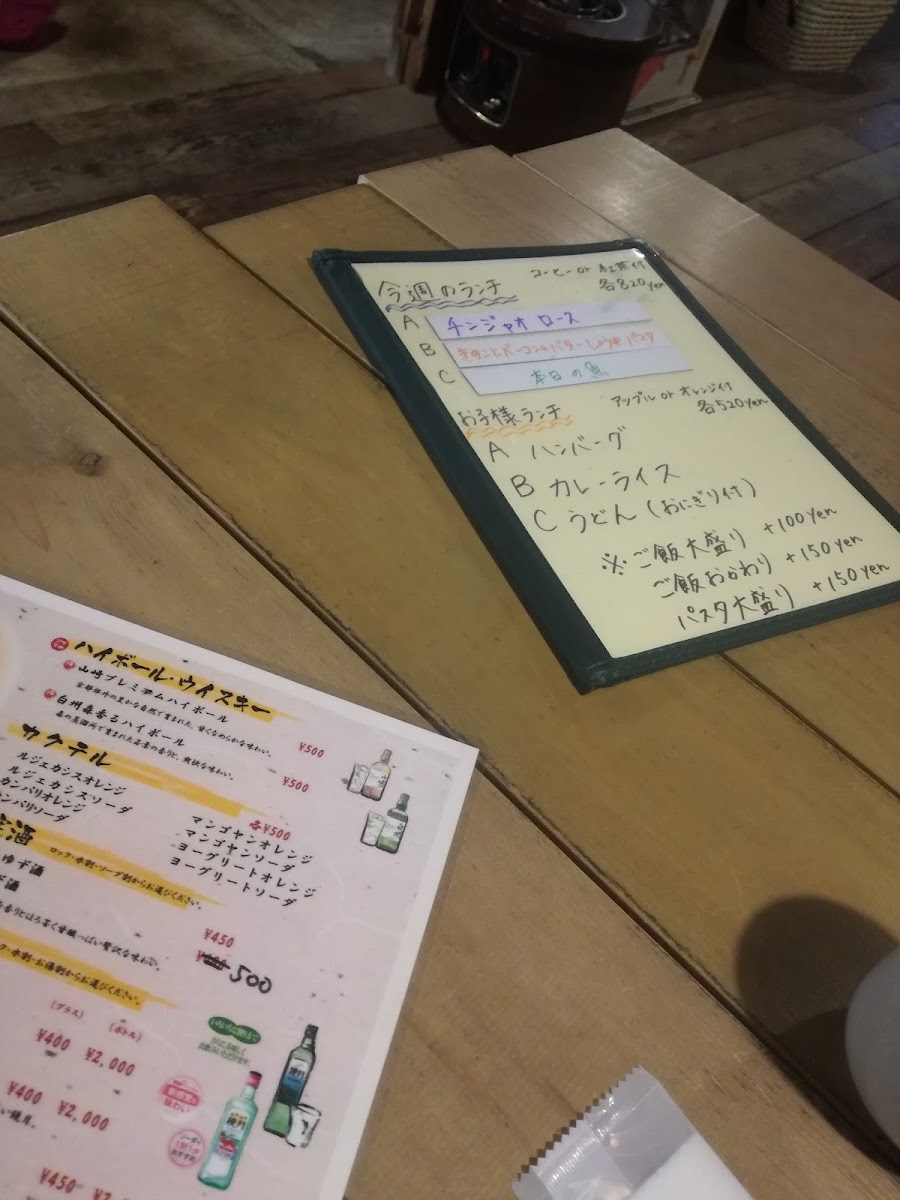 今週のランチ
コーヒー or 紅茶付
各820yen
A チンジャオ ロース
B きのことベーコンのバターしょうゆパスタ
C 本日の魚
お子様ランチ
アップル or オレンジ付
各520yen
A ハンバーグ
B カレーライス
C うどん(おにぎり付)
※ご飯大盛り +100yen
ご飯おかわり +150yen
パスタ大盛り +150yen
ハイボール・ウイスキー
山崎プレミアムハイボール
¥500
白州森香るハイボール
¥500
カクテル
各¥500
ルジェカシスオレンジ
ルジェカシスソーダ
カンパリオレンジ
カンパリソーダ
マンゴヤンオレンジ
マンゴヤンソーダ
ヨーグリートオレンジ
ヨーグリートソーダ
ロック・水割・ソーダ割からお選びください。
ゆず酒
¥450
500
水割・お湯割からお選びください。
(グラス) (ボトル)
¥400 ¥2,000
¥400 ¥2,000
¥450